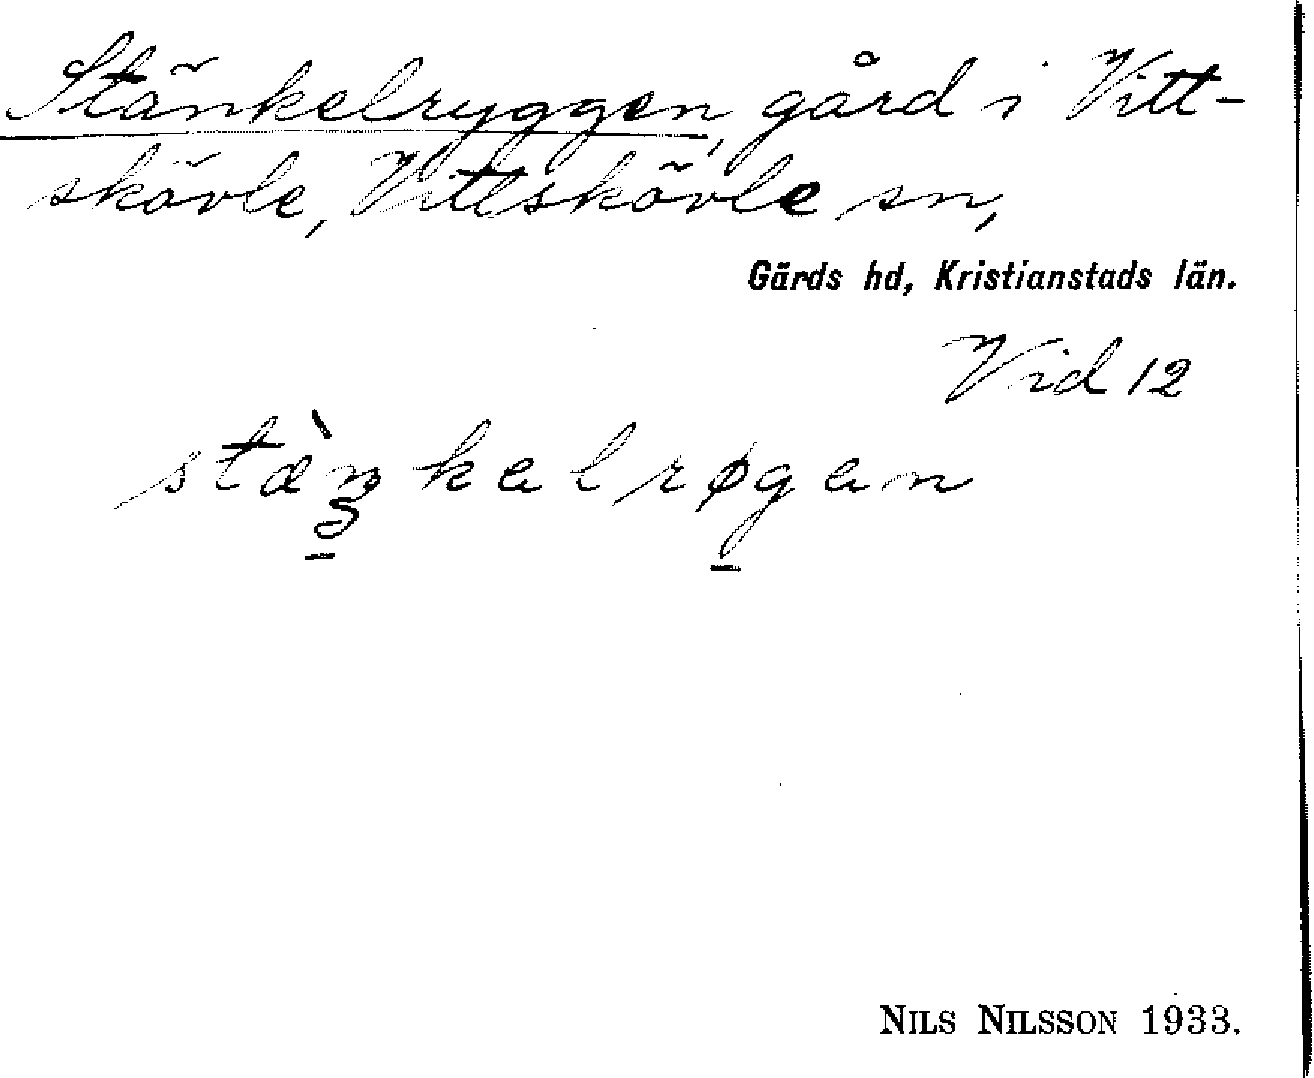 Stänkelryggen, gård i Vitt-
skövle, Vittskövle sn,
Gärds hd, Kristianstads län.
Vid 12
stæ̀ŋkelrøgen
NILS NILSSON 1933.